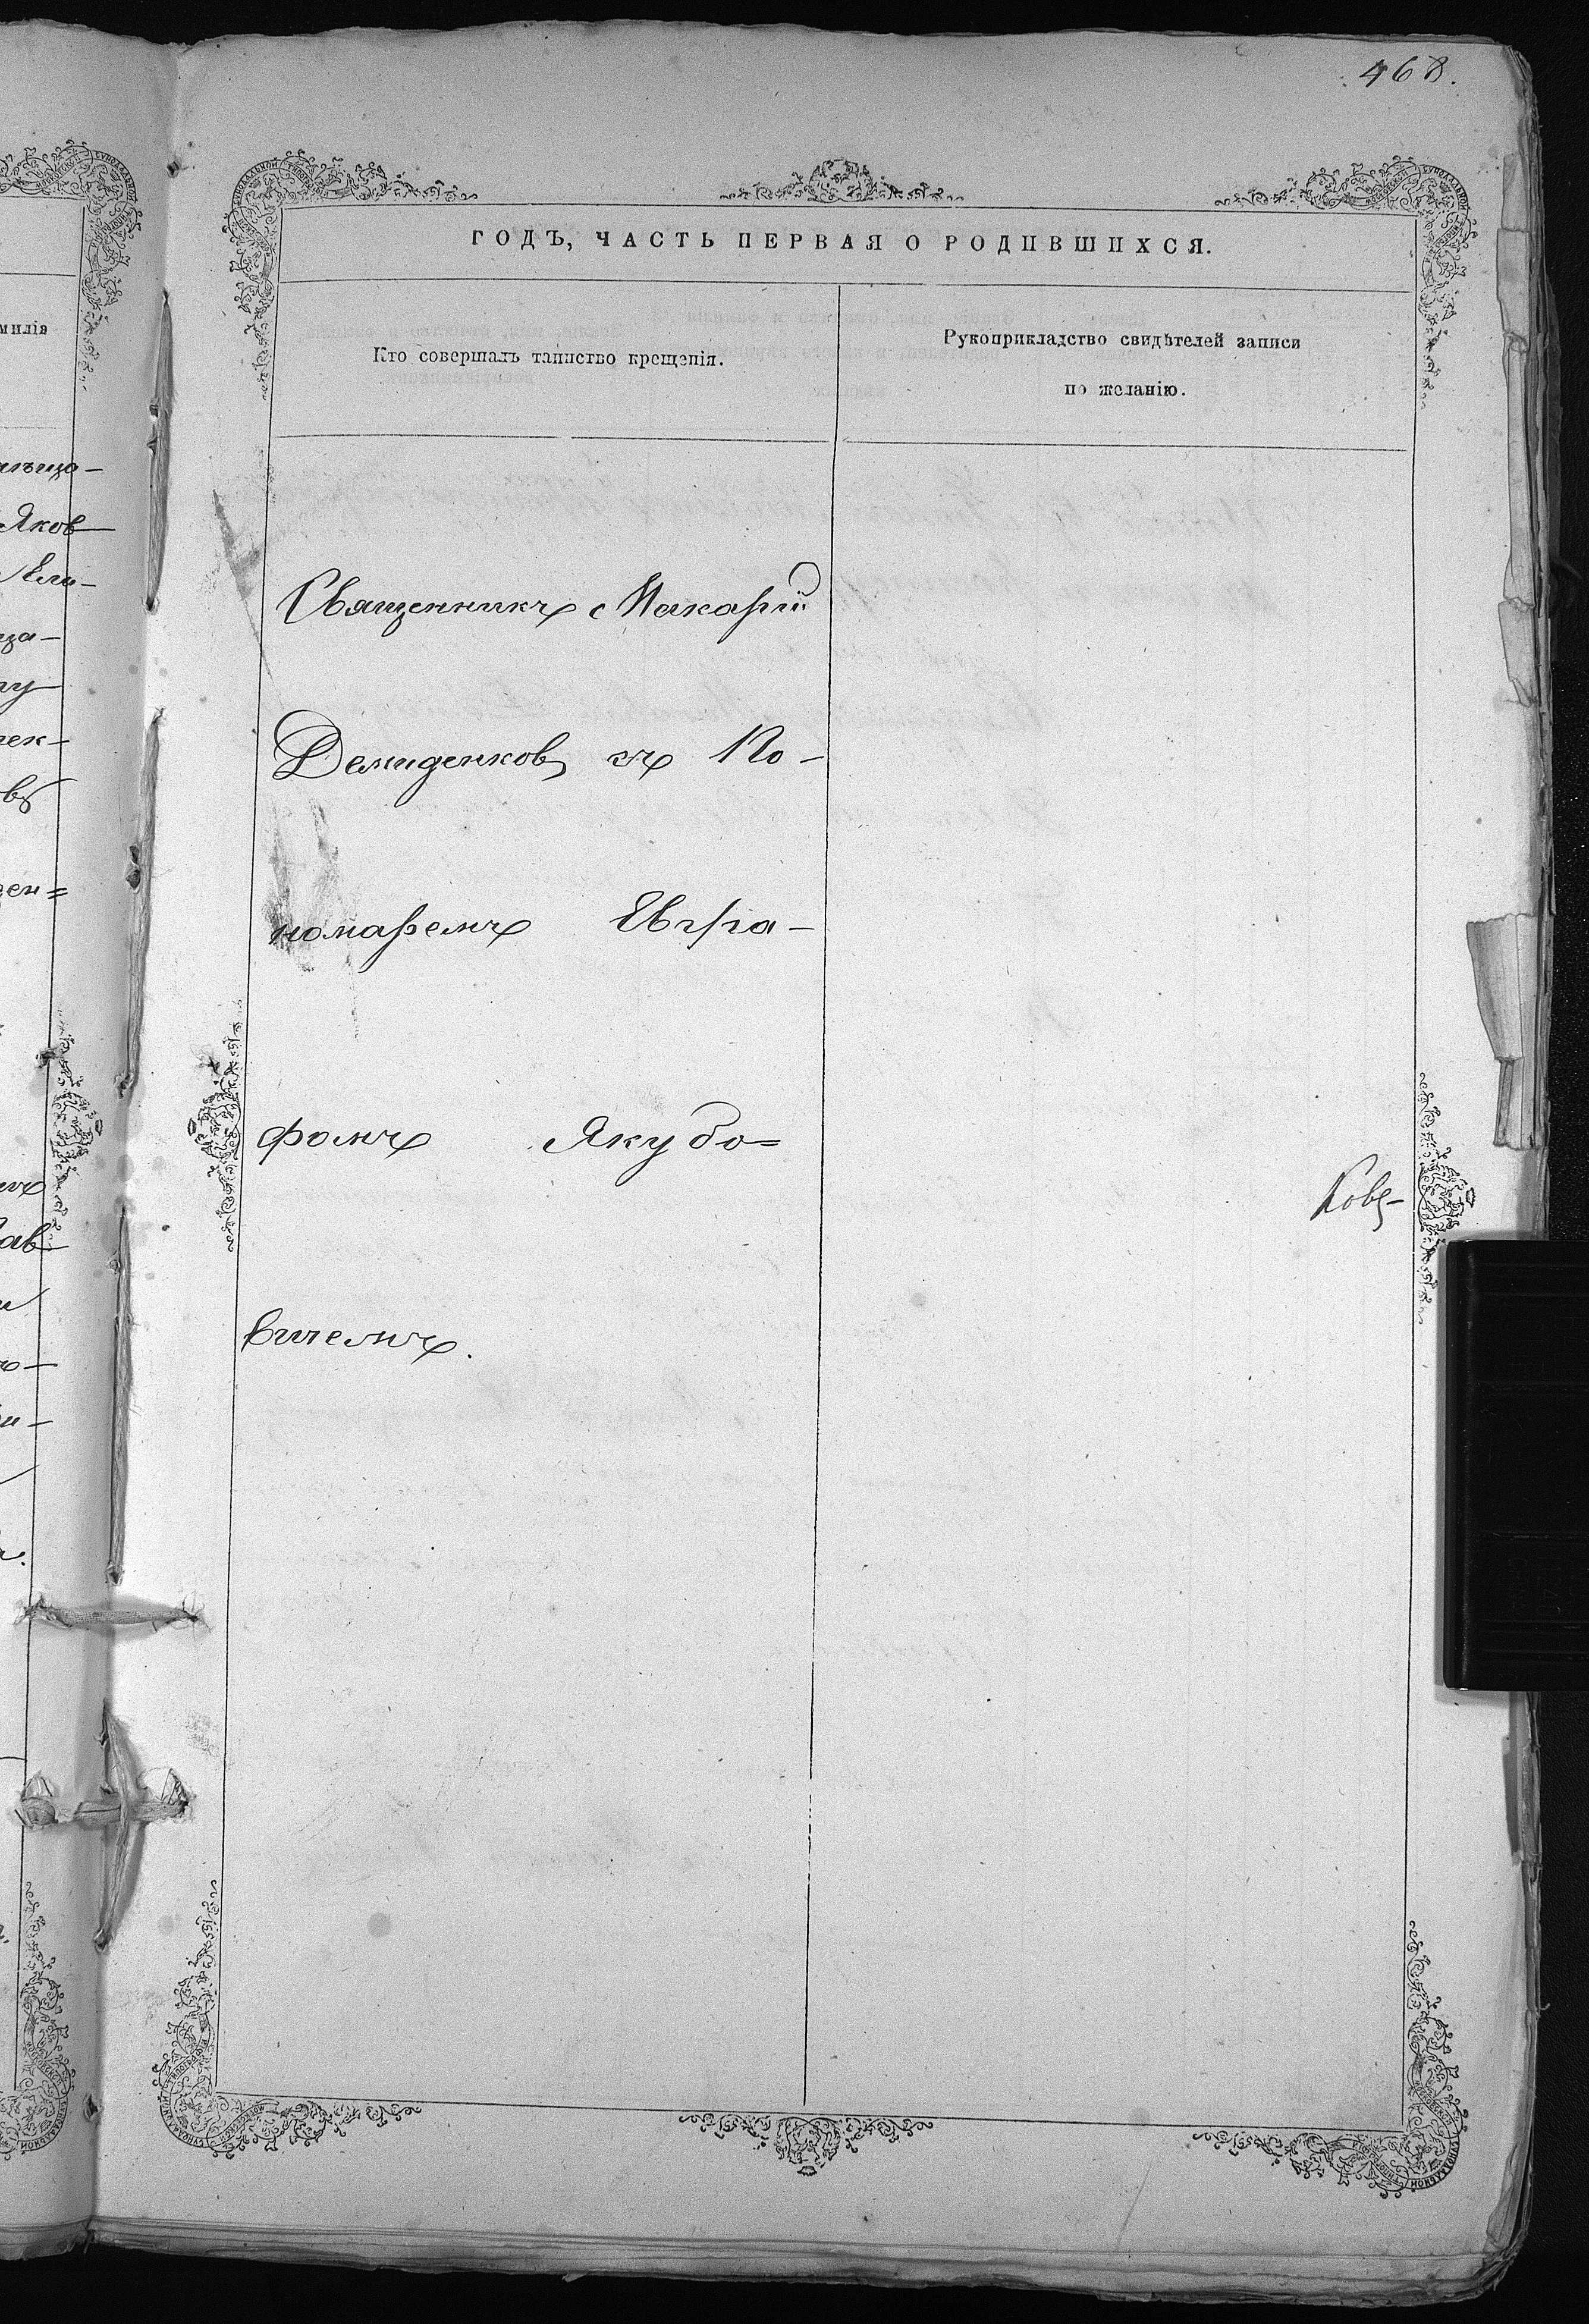 468.
ГОДЪ, ЧАСТЬ ПЕРВАЯ О РОДИВШИХСЯ.
Кто совершалъ таинство крещенія.
Рукоприкладство свидѣтелей записи
по желанію.
Священникъ Макарій
Демиденковъ съ По-
номаремъ Евгра-
фомъ Якубо=
вичемъ.
милія
Яков